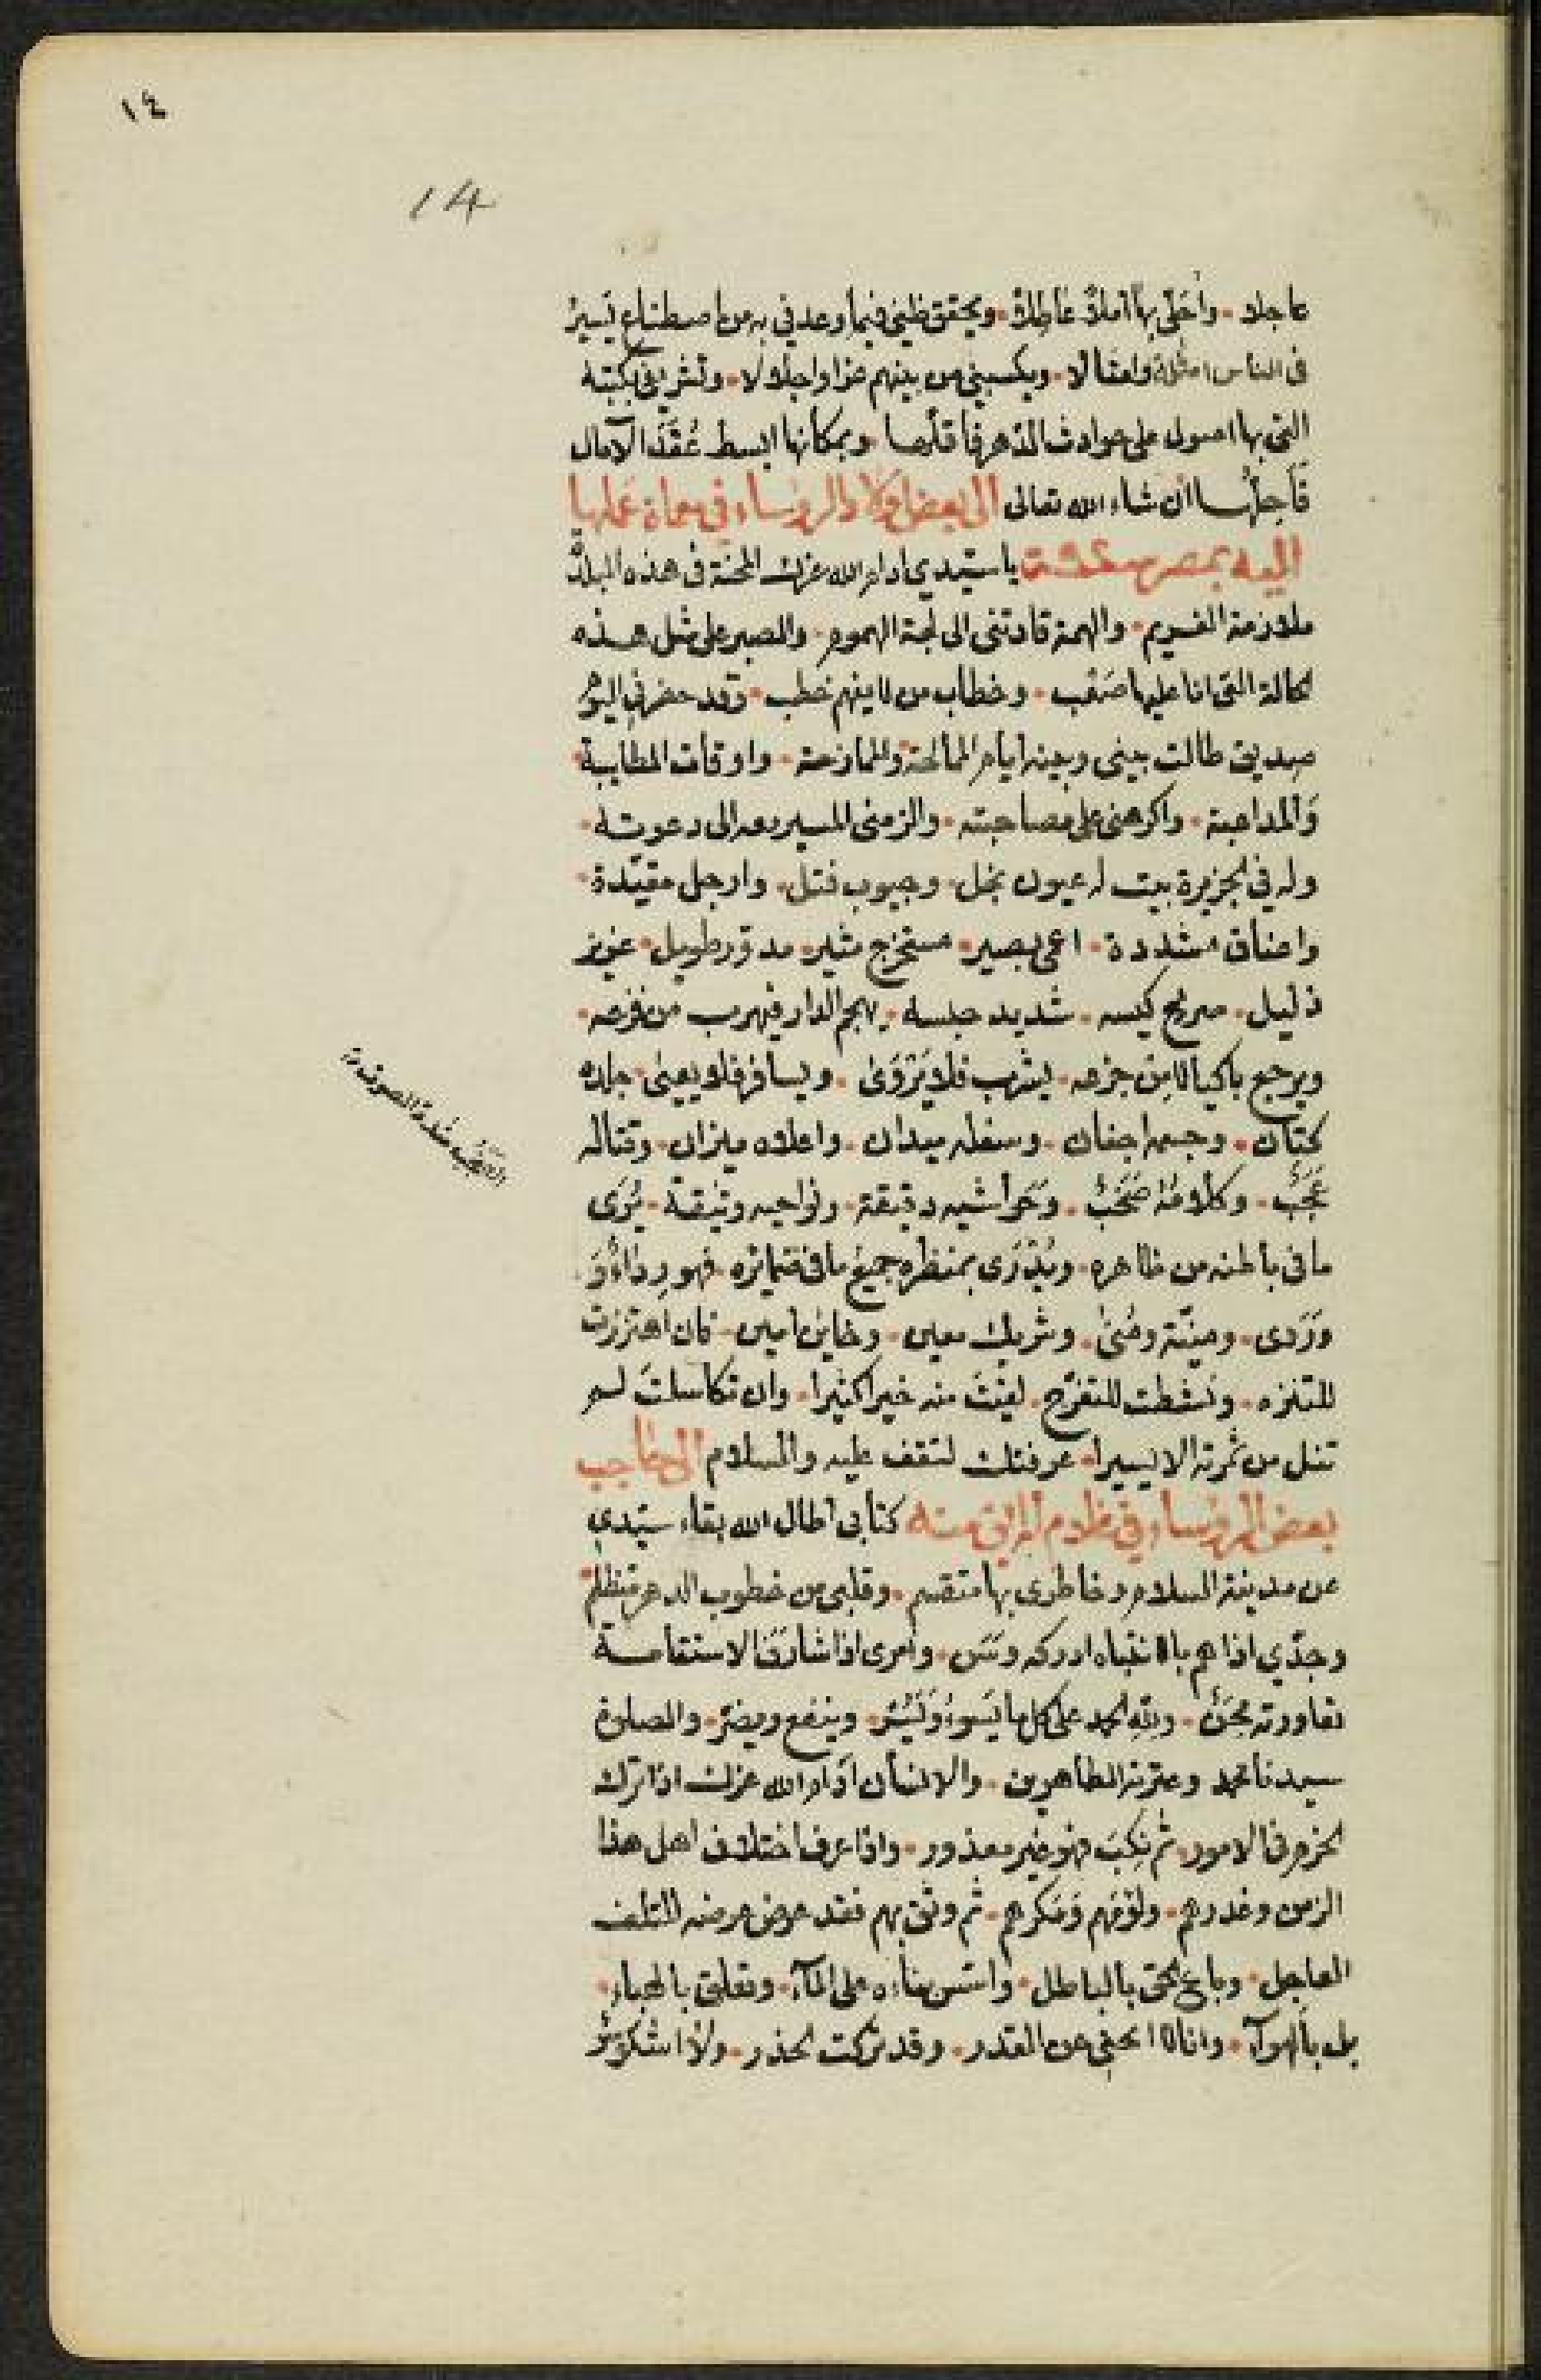 ١٤
14
عاجلا وأحلّي بها أملاً عاطلاً ويحقق ظني فيما وعدني به من اصطناع يسير
في الناس امثلة وامثالا ويكسبني من بينهم عزا واجلالا وتشريفي بكتبه
التي بها اصول على حوادث الدهر فأقلّها وبمكانها ابسط عُقَدَ الآمال
فأحلّها ان شاء الله تعالى الى بعض اولاد الرؤساء في معماة عملها
اليه بمصر يا سيدي ادام الله عزك المحنة في هذه البلدة
ملازمة الغريم والهمة قادتني الى لجة الهموم والصبر على مثل هذه
الحالة التي انا عليها صَعْب وخطاب من لا يفهم خطب وقد حضرني اليوم
صديق طالت بيني وبينه أيام الممالحة والممازحة واوقات المطايبة
والمداعبة واكرهني على مصاحبته والزمني المسير معه الى دعوته
وله في الجزيرة بيت له عيون نجل وجيوب فتل وارجل مقيّدة
واعناق مشددة اعمى بصير مستخرج مثير مدوّر طويل عزيز
ذليل مريح كيسه شديد حبسه يهجم الدار فيهرب من فزعه
ويرجع باكيا من جزعه يشرب فلا يَرْوَى ويسافر فلا يعيى جلده
كتّان وجسمه اجفان وسفله ميدان واعلاه ميزان وقتاله
عَجَبٌ وكلامه صَخَبٌ وحواشيه دقيقة ونواحيه وثيقة يُرَى
ما في باطنه من ظاهره ويُدْرَى بمنظره جميع ما في ضمائره فهو رداءٌ وَ
وَرَدى ومنيّة ومُنىً وشريك معين وخاين امين فان اهتززت
للتنزه ونشطت للتفرّج لقيت منه خيرا كثيرا وان تكاسلت لم
تنل من ثمرته الا يسيرا عرفتك لتقف عليه والسلام الى حاجب
بعض الرؤساء في غلام ابق منه كتابي اطال الله بقاء سيّدي
عن مدينة السلام وخاطري بها متقسم وقلبي من خطوب الدهر متظلّم
وجدّي اذا هم بالانتباه ادركه وسَن وأمري اذا شارف الاستقامة
تعاورته محَنٌ ولله الحمد على كل ما يَسوءُ وَيَسُرّ وينفع ويضرّ والصلوة
سيدنا محمد وعترته الطاهرين والانسان ادام الله عزك اذا ترك
الحزم في الامور ثم نُكِبَ فهو غير معذور واذا عرف اختلاف اهل هذا
الزمن وغدرهم ولؤمهم وَمَكرهم ثم وثق بهم فقد عرض عرضه للتلف
العاجل وباع الحق بالباطل واسّس بناءه على المآء وتعلق بالهباء
بل بالهوآء وانا اتحفى عن القدر وقد تركت الحذر ولا اشكو شر